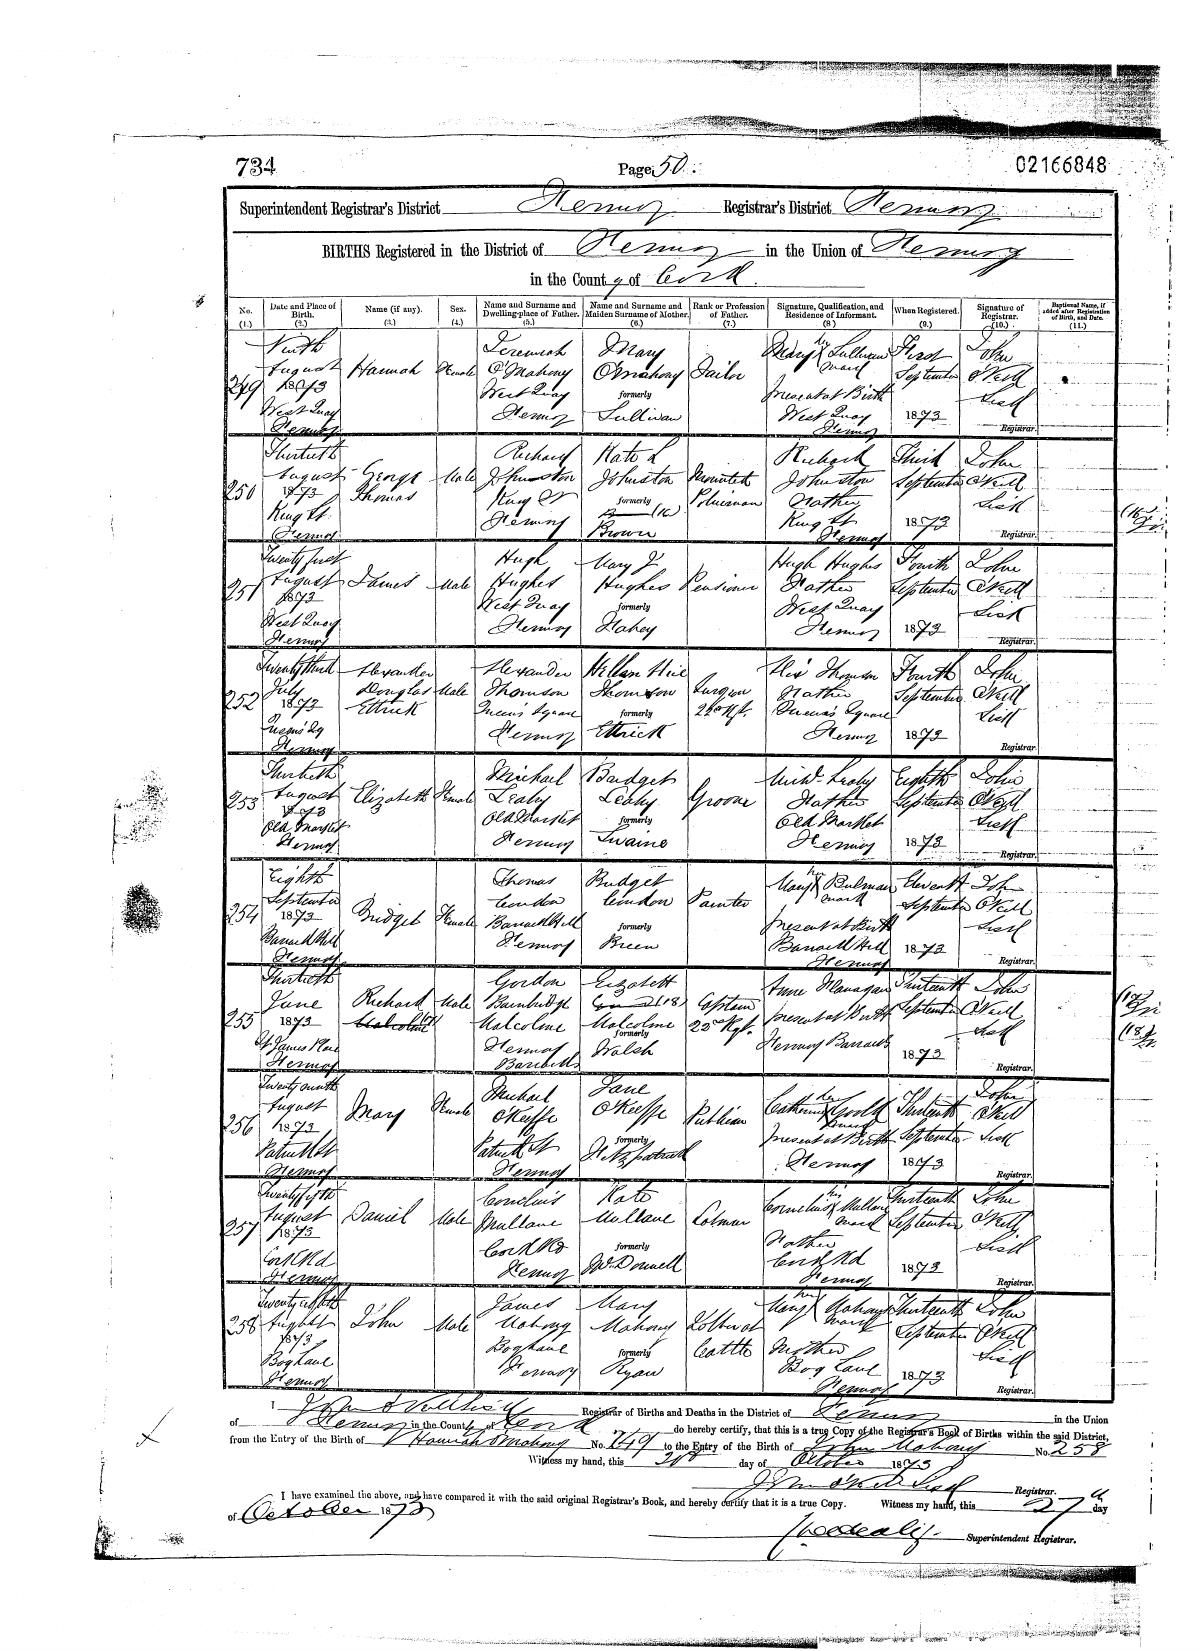 734 Page 50. 02166848
Superintendent Registrar's District Fermoy Registrar's District Fermoy
BIRTHS Registered in the District of Fermoy in the Union of Fermoy
in the County of Cork.
No. (1.) Date and Place of Birth. (2.) Name (if any). (3.) Sex. (4.) Name and Surname and Dwelling-place of Father. (5.) Name and Surname and Maiden Surname of Mother. (6.) Rank or Profession of Father. (7.) Signature, Qualification, and Residence of Informant. (8.) When Registered. (9.) Signature of Registrar. (10.) Baptismal Name, if added after Registration of Birth, and Date. (11.)
249 Ninth August 1873 West Quay Fermoy Hannah Female Jeremiah O'Mahony West Quay Fermoy Mary O'Mahony formerly Sullivan Tailor Mary X Sullivan her mark present at Birth West Quay Fermoy First September 1873 John O'Neill Sisk Registrar.
250 Thirtieth August 1873 King St Fermoy George Thomas Male Richard Johnston King St Fermoy Kate L Johnston formerly (16) Brown Mounted Policeman Richard Johnston Father King St Fermoy Third September 1873 John O'Neill Sisk Registrar.
251 Twenty first August 1873 West Quay Fermoy James Male Hugh Hughes West Quay Fermoy Mary J Hughes formerly Fahey Pensioner Hugh Hughes Father West Quay Fermoy Fourth September 1873 John O'Neill Sisk Registrar.
252 Twenty third July 1873 Queen's Sq Fermoy Alexander Douglas Ettrick Male Alexander Thomson Queen's Square Fermoy Thomson formerly Ettrick Surgeon 22nd Rgt. Alex Thomson Father Queen's Square Fermoy Fourth September 1873 John O'Neill Sisk Registrar.
253 Thirtieth August 1873 Old Market Fermoy Elizabeth Female Michael Leahy Old Market Fermoy Bridget Leahy formerly Swaine Groom Michl. Leahy Father Old Market Fermoy Eighth September 1873 John O'Neill Sisk Registrar.
254 Eighth September 1873 Barrack Hill Fermoy Bridget Female Thomas Condon Barrack Hill Fermoy Bridget Condon formerly Breen Painter Mary X Bulman her mark present at Birth Barrack Hill Fermoy Eleventh September 1873 John O'Neill Sisk Registrar.
255 Thirtieth June 1873 St James Place Fermoy Richard Malcolme Male Gordon Bainbridge Malcolme Fermoy Barracks Elizabeth (18) Malcolme formerly Walsh Captain 22nd Rgt. Anne Flanagan present at Birth Fermoy Barracks Thirteenth September 1873 John O'Neill Sisk Registrar.
256 Twenty ninth August 1873 Patrick St Fermoy Mary Female Michael O'Keeffe Patrick St Fermoy Jane O'Keeffe formerly Fitzpatrick Publican Catherine X Goold her mark present at Birth Fermoy Thirteenth September 1873 John O'Neill Sisk Registrar.
257 Twenty fifth August 1873 Cork Rd Fermoy Daniel Male Cornelius Mullane Cork Rd Fermoy Kate Mullane formerly McDonnell Cornelius X Mullane his mark Father Cork Rd Fermoy Thirteenth September 1873 John O'Neill Sisk Registrar.
258 Twenty eighth August 1873 Bog Lane Fermoy John Male James Mahony Bog Lane Fermoy Mary Mahony formerly Ryan Jobber of Cattle Mary X Mahony her mark Mother Bog Lane Fermoy Thirteenth September 1873 John O'Neill Sisk Registrar.
I John O'Neill Sisk Registrar of Births and Deaths in the District of Fermoy in the Union
of Fermoy in the County of Cork do hereby certify, that this is a true Copy of the Registrar's Book of Births within the said District,
from the Entry of the Birth of Hannah O'Mahony No. 249 to the Entry of the Birth of John Mahony No. 258
Witness my hand, this day of October 1873
John O'Neill Sisk Registrar.
I have examined the above, and have compared it with the said original Registrar's Book, and hereby certify that it is a true Copy. Witness my hand, this 27th day
of October 1873
Superintendent Registrar.